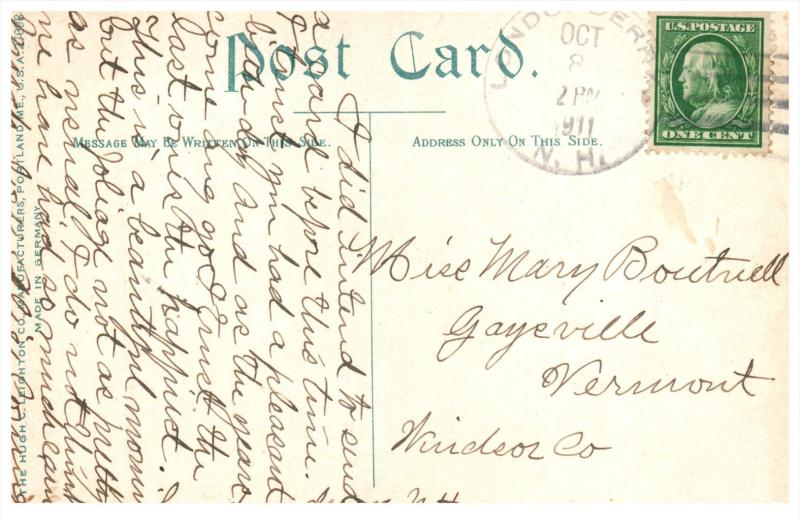 Post Card.
MESSAGE MAY BE WRITTEN ON THIS SIDE.
ADDRESS ONLY ON THIS SIDE.
LONDONDERRY
OCT
8
2 PM
1911
N. H.
U.S. POSTAGE
ONE CENT
Miss Mary Boutwell
Gaysville
Vermont
Windsor Co
I did intend to send
a card before this time.
I trust you had a pleasant
b'day and as the years
come and go I trust the
last one is the happiest.
This is a beautiful morn
but the foliage not as pretty
as usual, I do not think
we have had so much rain
THE HUGH C. LEIGHTON CO., MANUFACTURERS, PORTLAND, ME., U.S.A.
MADE IN GERMANY